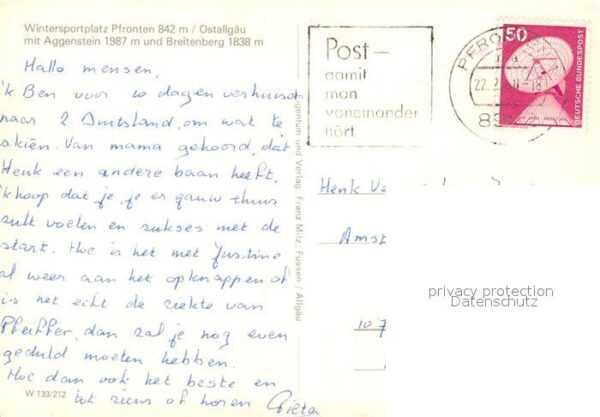 Wintersportplatz Pfronten 842 m / Ostallgäu
mit Aggenstein 1987 m und Breitenberg 1838 m
Hallo mensen,
'k Ben voor 10 dagen verhuisd
naar 2 Duitsland, om wat te
skiën. Van mama gehoord, dat
Henk een andere baan heeft,
'k hoop dat je, je er gauw thuis
zult voelen en sukses met de
start. Hoe is het met Justine
al weer aan het opknappen of
is het echt de ziekte van
Pfeiffer, dan zal je nog even
geduld moeten hebben.
Hoe dan ook het beste en
tot ziens of horen
W 133/212
und Verlag Franz Milz, Füssen / Allgäu
Post –
damit
man
voneinander
hört
PFRO
22.
50
DEUTSCHE BUNDESPOST
Henk
Amst
107
privacy protection
Datenschutz